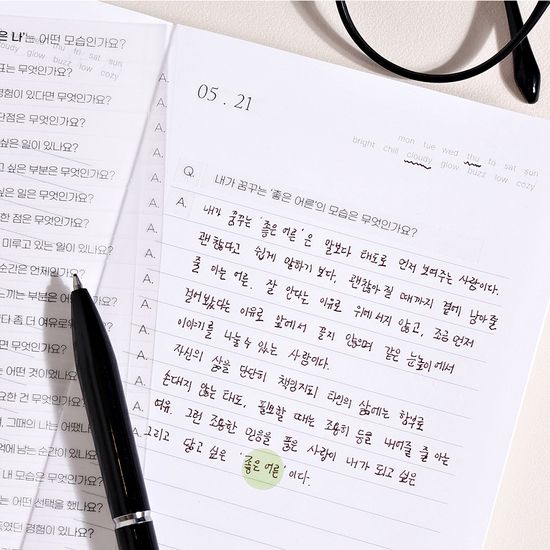 은 나'는 어떤 모습인가요?
표는 무엇인가요?
경험이 있다면 무엇인가요?
단점은 무엇인가요?
싶은 일이 있나요?
고 싶은 부분은 무엇인가요?
싶은 일은 무엇인가요?
한 점은 무엇인가요?
미루고 있는 일이 있나요?
순간은 언제인가요?
느끼는 부분은 어
다 좀 더 여유로워
은 무엇인가요?
는 어떤 것이었나요
요한 건 무엇인가요
, 그때의 나는 어땠나
억에 남는 순간이 있나요
내 모습은 무엇인가요?
는 어떤 선택을 했나요?
득였던 경험이 있나요?
05 . 21
mon tue wed thu fri sat sun
bright chill cloudy glow buzz low cozy
Q. 내가 꿈꾸는 '좋은 어른'의 모습은 무엇인가요?
A. 내가 꿈꾸는 '좋은 어른'은 말보다 태도로 먼저 보여주는 사람이다.
괜찮다고 쉽게 말하기 보다, 괜찮아질 때까지 곁에 남아줄
줄 아는 어른. 잘 안다는 이유로 위에 서지 않고, 조금 먼저
걸어봤다는 이유로 앞에서 끌지 않으며 같은 눈높이에서
이야기를 나눌 수 있는 사람이다.
자신의 삶을 단단히 책임지되 타인의 삶에는 함부로
손대지 않는 태도, 필요할 때는 조용히 등을 내어줄 줄 아는
여유. 그런 조용한 믿음을 품은 사람이 내가 되고 싶은
그리고 닮고 싶은 '좋은 어른'이다.